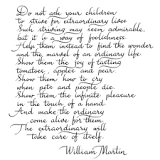 Do not ask your children
to strive for extraordinary lives.
Such striving may seem admirable,
but it is a way of foolishness.
Help them instead to find the wonder
and the marvel of an ordinary life.
Show them the joy of tasting
tomatoes, apples and pears.
Show them how to cry
when pets and people die.
Show them the infinite pleasure
in the touch of a hand.
And make the ordinary
come alive for them.
The extraordinary will
take care of itself.
William Martin